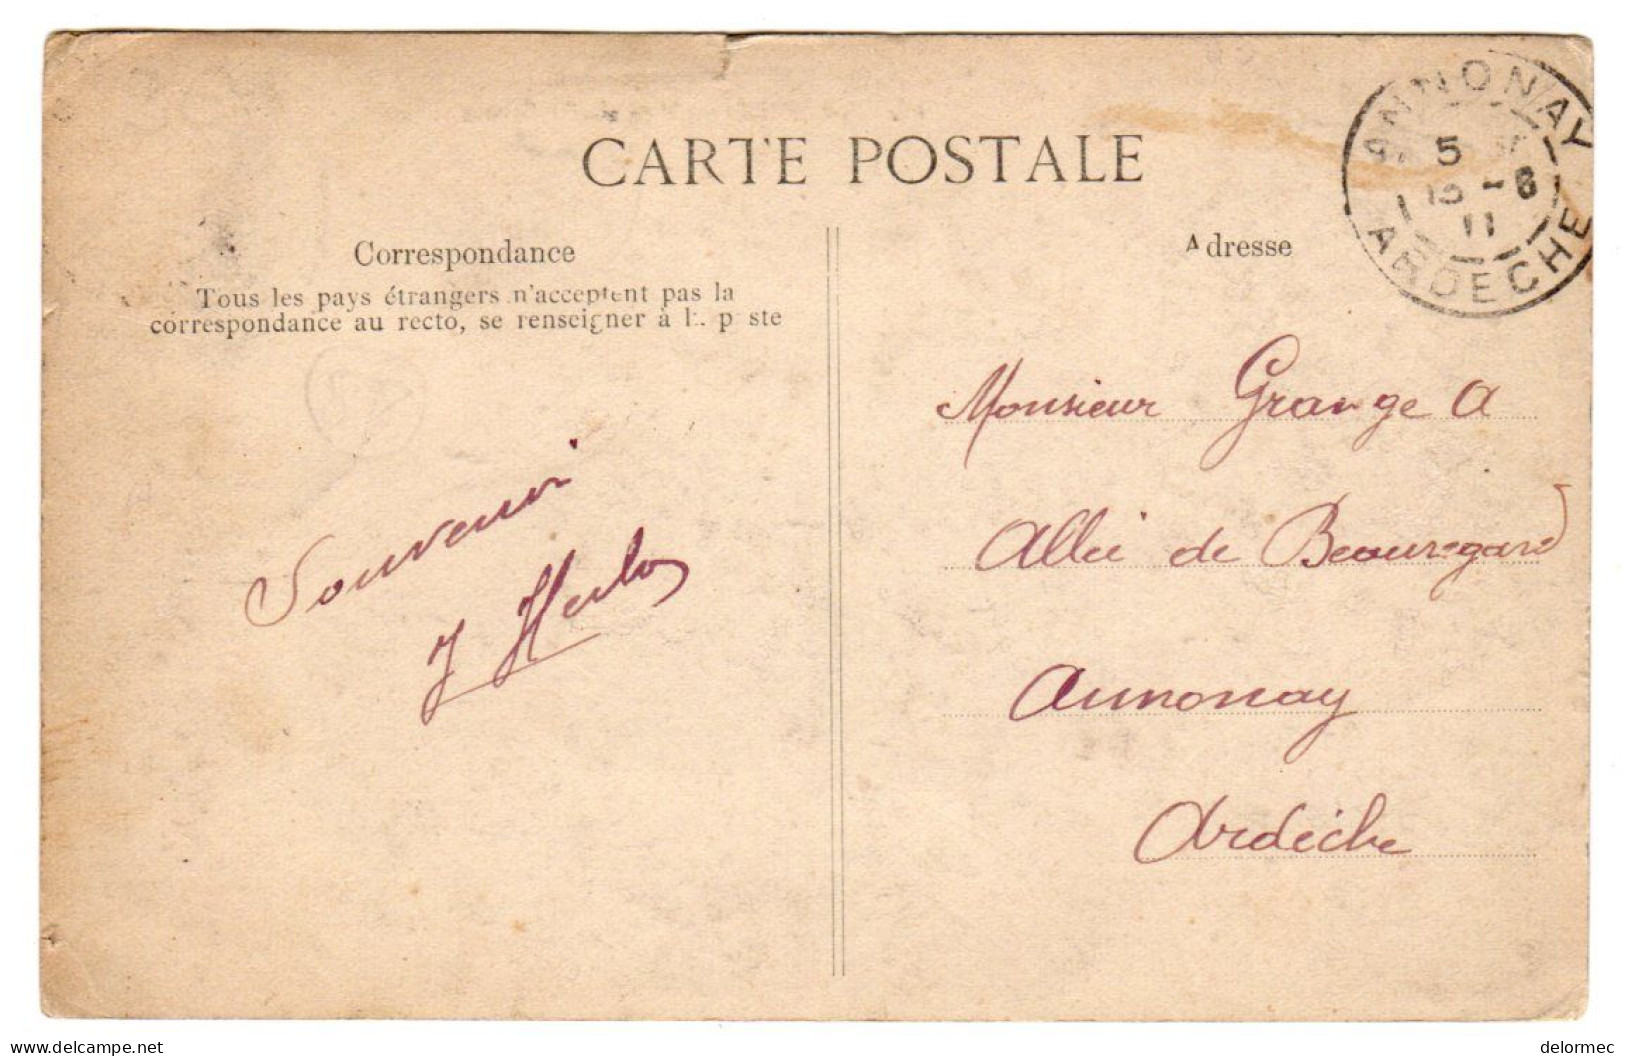 CARTE POSTALE
Correspondance
Tous les pays étrangers n'acceptent pas la
correspondance au recto, se renseigner à la poste
Souvenir
J
Adresse
Monsieur Grange A
Allée de Beauregard
Annonay
Ardèche
ANNONAY
5
15 -6
11
ARDECHE
delcampe.net
delormec